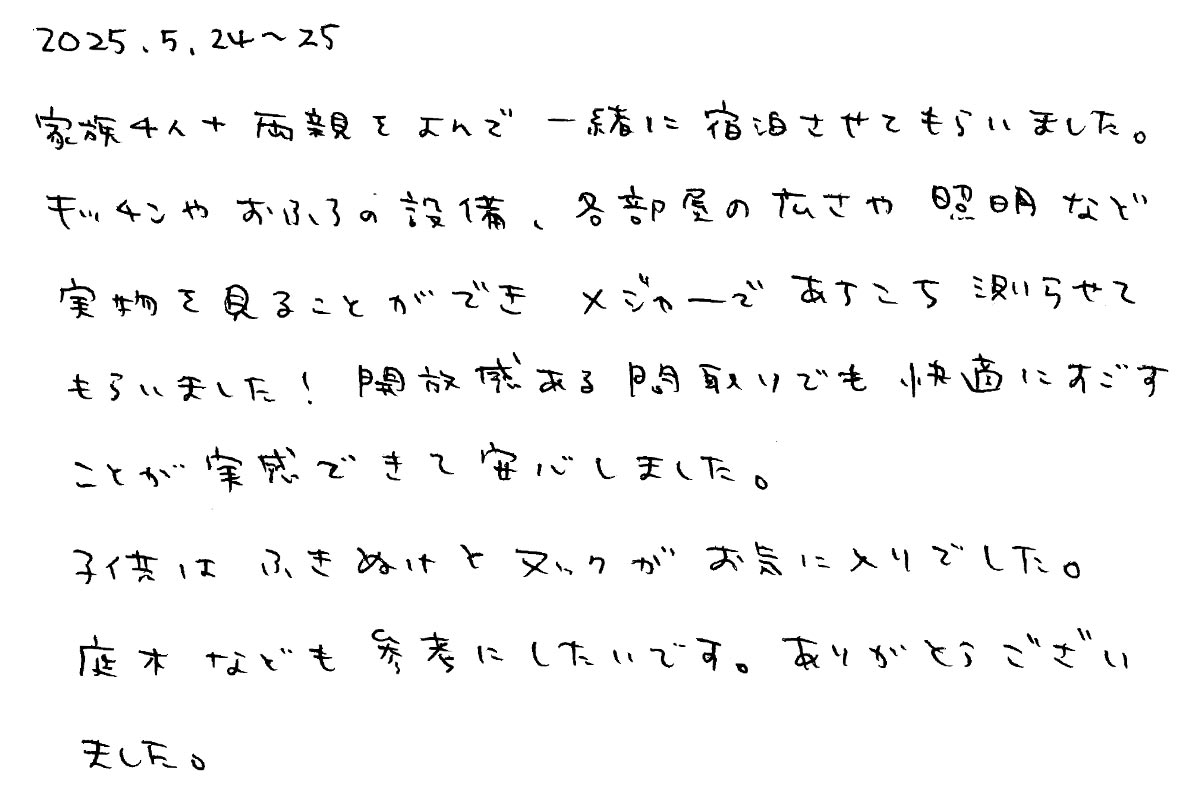 2025.5.24～25
家族4人+両親をよんで一緒に宿泊させてもらいました。
キッチンやおふろの設備、各部屋の広さや照明など
実物を見ることができ メジャーであちこち測らせて
もらいました！開放感ある間取りでも快適にすごす
ことが実感できて安心しました。
子供はふきぬけとヌックがお気に入りでした。
庭木なども参考にしたいです。ありがとうござい
ました。